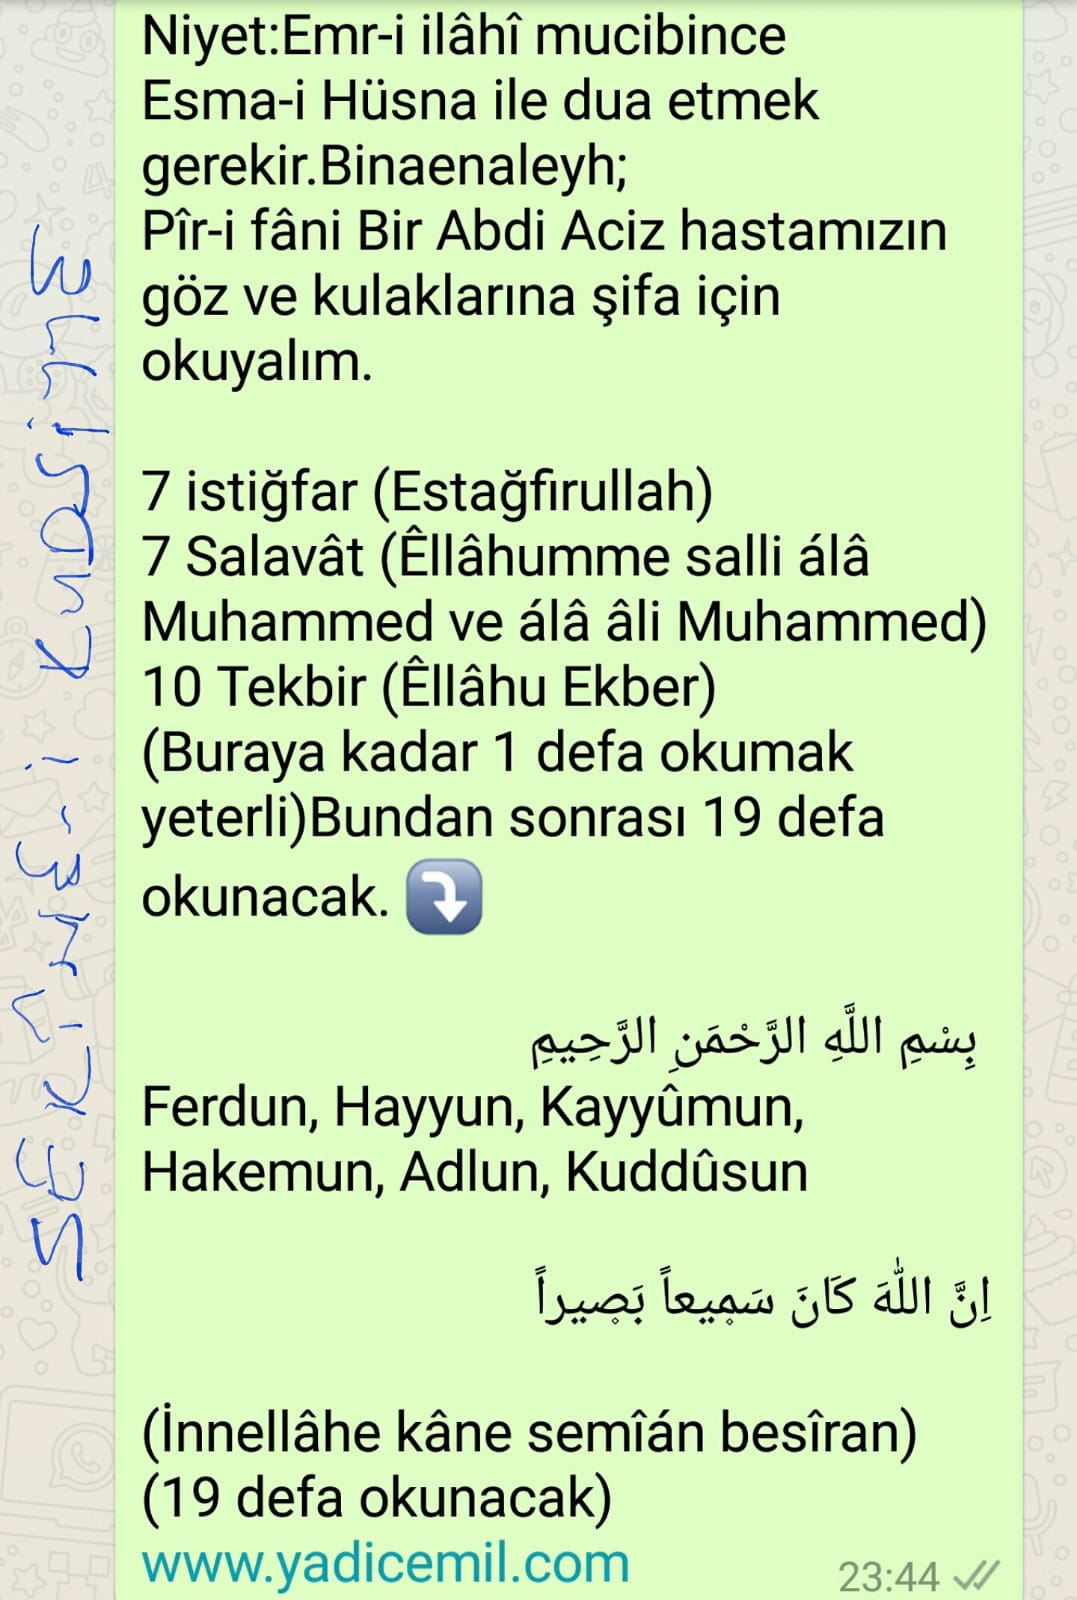 Niyet:Emr-i ilâhî mucibince
Esma-i Hüsna ile dua etmek
gerekir.Binaenaleyh;
Pîr-i fâni Bir Abdi Aciz hastamızın
göz ve kulaklarına şifa için
okuyalım.
7 istiğfar (Estağfirullah)
7 Salavât (Êllâhumme salli álâ
Muhammed ve álâ âli Muhammed)
10 Tekbir (Êllâhu Ekber)
(Buraya kadar 1 defa okumak
yeterli)Bundan sonrası 19 defa
okunacak. ⤵️
بِسْمِ اللَّهِ الرَّحْمَنِ الرَّحِيمِ
Ferdun, Hayyun, Kayyûmun,
Hakemun, Adlun, Kuddûsun
اِنَّ اللّٰهَ كَانَ سَمٖيعاً بَصٖيراً
(İnnellâhe kâne semîán besîran)
(19 defa okunacak)
www.yadicemil.com
23:44